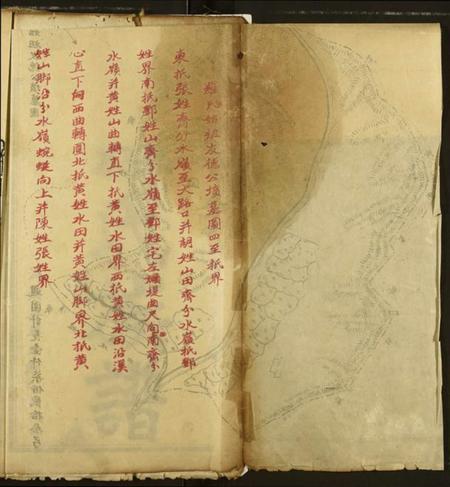 羅氏始祖友德公墳墓圖四至抵界
東抵張姓齊分水嶺至大路口并胡姓山田齊分水嶺抵鄧
姓界南抵鄧姓山齊分水嶺至鄧姓宅左塘堤曲尺向南齊分
水嶺并黃姓山曲轉直下抵黃姓水田界西抵黃姓水田沿溪
心直下向西曲轉圍北抵黃姓水田并黃姓山腳界北抵黃
姓山腳沿分水嶺蜿蜒向上并陳姓張姓界